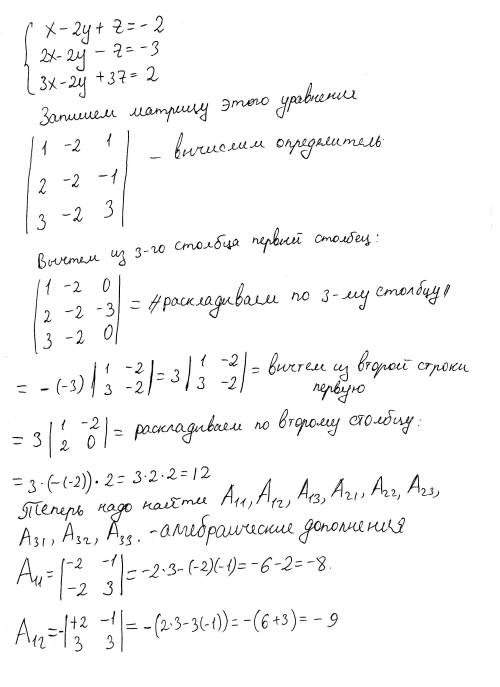 x - 2y + z = -2
2x - 2y - z = -3
3x - 2y + 3z = 2
Запишем матрицу этого уравнения
|1 -2 1|
|2 -2 -1| - вычислим определитель.
|3 -2 3|
Вычтем из 3-го столбца первый столбец:
|1 -2 0|
|2 -2 -3| = //раскладываем по 3-му столбцу//
|3 -2 0|
= -(-3) |1 -2; 3 -2| = 3 |1 -2; 3 -2| = вычтем из второй строки
первую
= 3 |1 -2; 2 0| = раскладываем по второму столбцу:
= 3·(-(-2))·2 = 3·2·2 = 12
Теперь надо найти A11, A12, A13, A21, A22, A23,
A31, A32, A33. - алгебраические дополнения
A11 = |-2 -1; -2 3| = -2·3-(-2)(-1) = -6-2 = -8.
A12 = -|+2 -1; 3 3| = -(2·3-3(-1)) = -(6+3) = -9